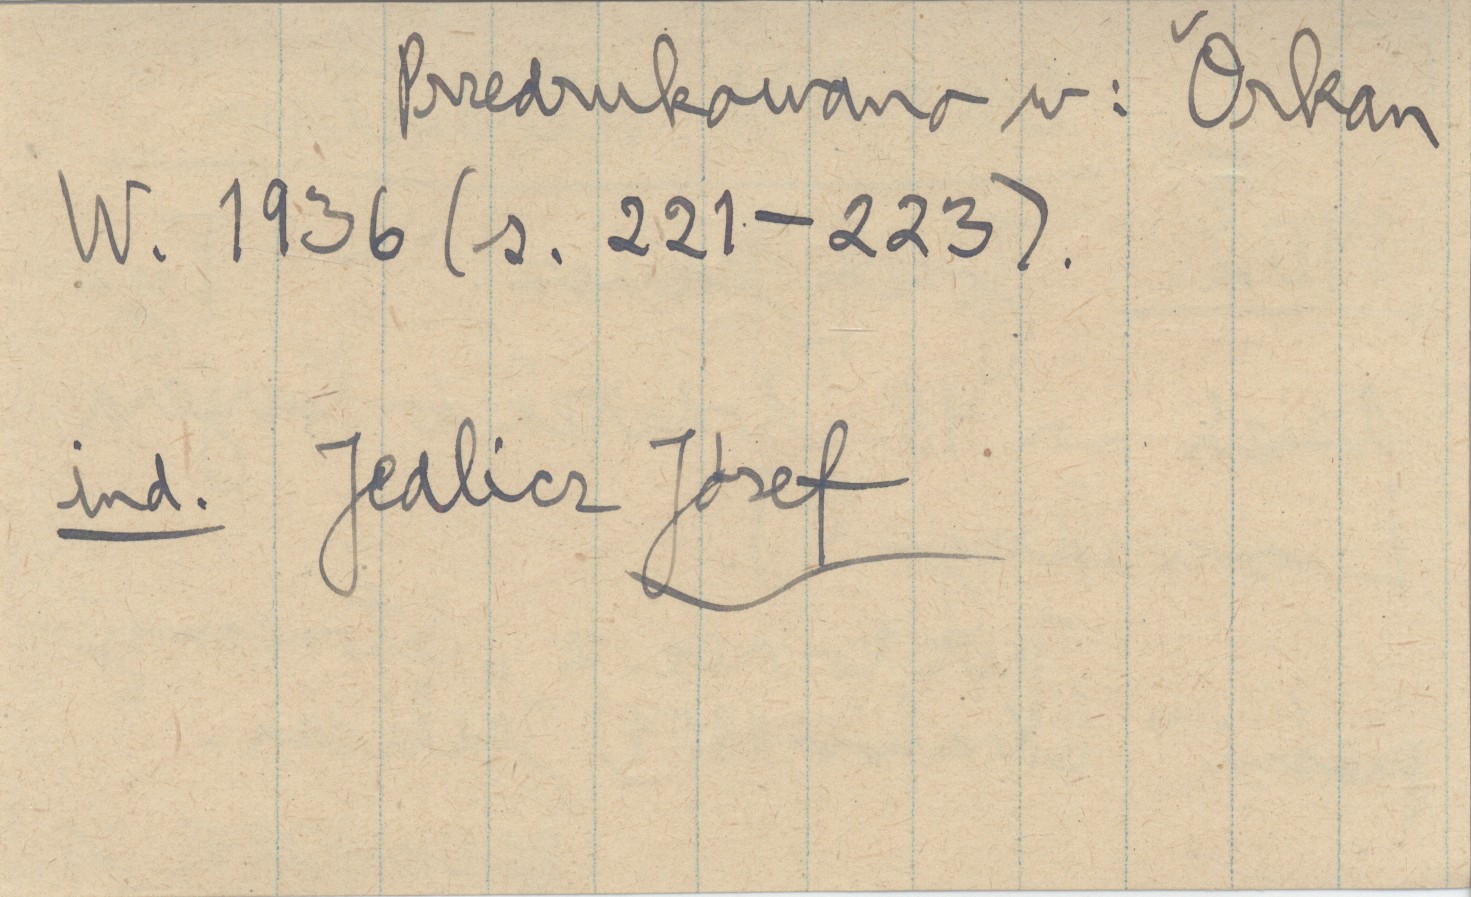 Przedrukowano w: Orkan
W. 1936 (s. 221-223).
ind. Jedlicz Józef